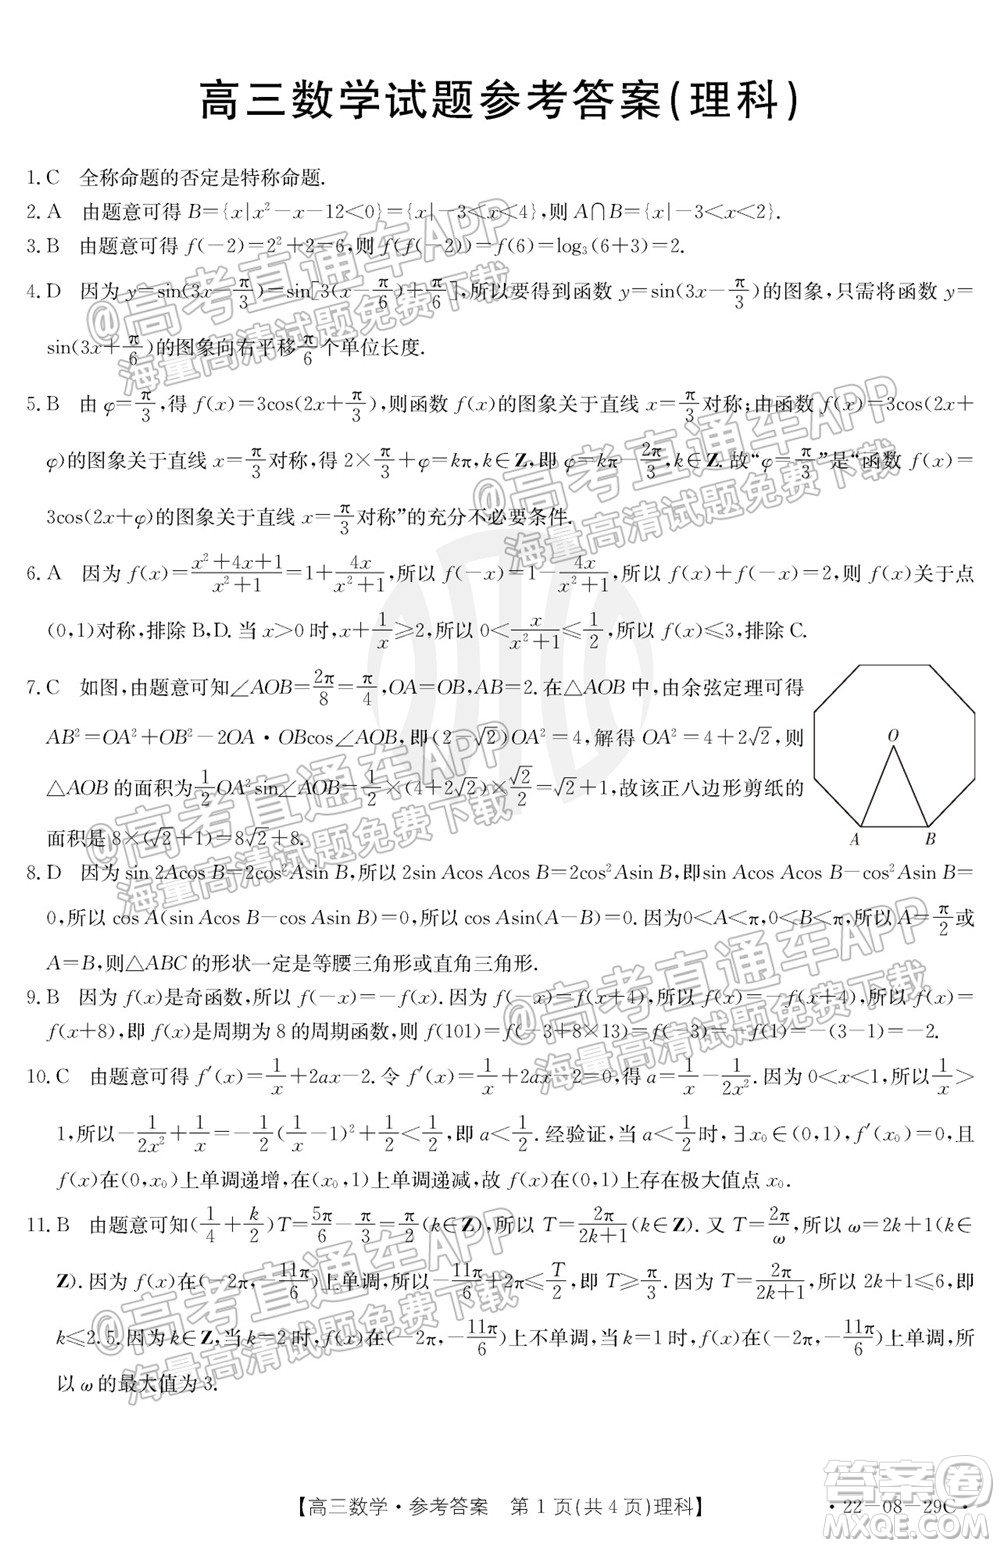 高三数学试题参考答案(理科)
1.C 全称命题的否定是特称命题.
2.A 由题意可得 B={x|x²-x-12<0}={x|-3<x<4},则 A∩B={x|-3<x<2}.
3.B 由题意可得 f(-2)=2²+2=6,则 f(f(-2))=f(6)=log₃(6+3)=2.
4.D 因为 y=sin(3x-π/3)=sin[3(x-π/6)+π/6],所以要得到函数 y=sin(3x-π/3)的图象,只需将函数 y=
sin(3x+π/6)的图象向右平移π/6个单位长度.
5.B 由 φ=π/3,得 f(x)=3cos(2x+π/3),则函数 f(x)的图象关于直线 x=π/3对称;由函数 f(x)=3cos(2x+
φ)的图象关于直线 x=π/3对称,得 2×π/3+φ=kπ,k∈Z,即 φ=kπ-2π/3,k∈Z.故“φ=π/3”是“函数 f(x)=
3cos(2x+φ)的图象关于直线 x=π/3对称”的充分不必要条件.
6.A 因为 f(x)=(x²+4x+1)/(x²+1)=1+4x/(x²+1),所以 f(-x)=1-4x/(x²+1),所以 f(x)+f(-x)=2,则 f(x)关于点
(0,1)对称,排除 B,D.当 x>0 时,x+1/x≥2,所以 0<x/(x²+1)≤1/2,所以 f(x)≤3,排除 C.
7.C 如图,由题意可知∠AOB=2π/8=π/4,OA=OB,AB=2.在△AOB 中,由余弦定理可得
AB²=OA²+OB²-2OA·OBcos∠AOB,即(2-√2)OA²=4,解得 OA²=4+2√2,则
△AOB 的面积为1/2OA²sin∠AOB=1/2×(4+2√2)×√2/2=√2+1,故该正八边形剪纸的
面积是 8×(√2+1)=8√2+8.
O
A
B
8.D 因为 sin 2Acos B=2cos²Asin B,所以 2sin Acos Acos B=2cos²Asin B,即sin Acos Acos B-cos²Asin B=
0,所以 cos A(sin Acos B-cos Asin B)=0,所以 cos Asin(A-B)=0.因为0<A<π,0<B<π,所以 A=π/2或
A=B,则△ABC 的形状一定是等腰三角形或直角三角形.
9.B 因为 f(x)是奇函数,所以 f(-x)=-f(x).因为 f(-x)=f(x+4),所以-f(x)=f(x+4),所以 f(x)=
f(x+8),即 f(x)是周期为 8 的周期函数,则 f(101)=f(-3+8×13)=f(-3)=-f(1)=-(3-1)=-2.
10.C 由题意可得 f′(x)=1/x+2ax-2.令 f′(x)=1/x+2ax-2=0,得 a=1/x-1/2x².因为 0<x<1,所以1/x>
1,所以-1/2x²+1/x=-1/2(1/x-1)²+1/2<1/2,即 a<1/2.经验证,当 a<1/2时,∃x₀∈(0,1),f′(x₀)=0,且
f(x)在(0,x₀)上单调递增,在(x₀,1)上单调递减,故 f(x)在(0,1)上存在极大值点 x₀.
11.B 由题意可知(1/4+k/2)T=5π/6-π/3=π/2(k∈Z),所以 T=2π/(2k+1)(k∈Z).又 T=2π/ω,所以 ω=2k+1(k∈
Z).因为 f(x)在(-2π,-11π/6)上单调,所以-11π/6+2π≤T/2,即 T≥π/3.因为 T=2π/(2k+1),所以 2k+1≤6,即
k≤2.5.因为k∈Z,当 k=2时,f(x)在(-2π,-11π/6)上不单调,当 k=1时,f(x)在(-2π,-11π/6)上单调,所
以 ω 的最大值为 3.
【高三数学·参考答案 第 1 页(共 4 页)理科】
·22-08-29C·
@高考直通车APP
海量高清试题免费下载
@高考直通车APP
海量高清试题免费下载
@高考直通车APP
海量高清试题免费下载
@高考直通车APP
海量高清试题免费下载
@高考直通车APP
海量高清试题免费下载
答案圈
MXQE.COM